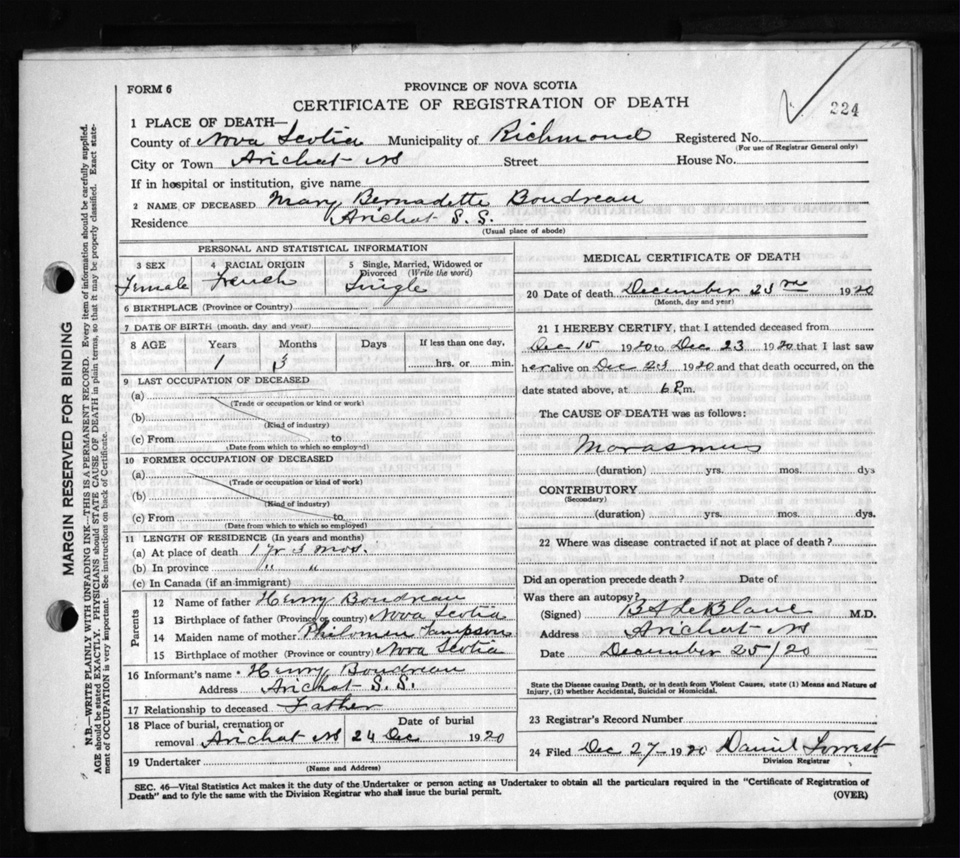 FORM 6
PROVINCE OF NOVA SCOTIA
CERTIFICATE OF REGISTRATION OF DEATH
224
1 PLACE OF DEATH—
County of Nova Scotia Municipality of Richmond Registered No.
(For use of Registrar General only)
City or Town Arichat NS Street House No.
If in hospital or institution, give name
2 NAME OF DECEASED Mary Bernadette Boudreau
Residence Arichat S. S.
(Usual place of abode)
PERSONAL AND STATISTICAL INFORMATION
3 SEX Female
4 RACIAL ORIGIN French
5 Single, Married, Widowed or Divorced (Write the word) Single
6 BIRTHPLACE (Province or Country)
7 DATE OF BIRTH (month, day and year)
8 AGE Years Months Days If less than one day,
1 3 hrs. or min.
9 LAST OCCUPATION OF DECEASED
(a)
(Trade or occupation or kind or work)
(b)
(Kind of industry)
(c) From to
(Date from which to which so employed)
10 FORMER OCCUPATION OF DECEASED
(a)
(Trade or occupation or kind of work)
(b)
(Kind of industry)
(c) From to
(Date from which to which so employed)
11 LENGTH OF RESIDENCE (In years and months)
(a) At place of death 1 yr 3 mos.
(b) In province " "
(c) In Canada (if an immigrant)
Parents
12 Name of father Henry Boudreau
13 Birthplace of father (Province or country) Nova Scotia
14 Maiden name of mother Philomen Sampson
15 Birthplace of mother (Province or country) Nova Scotia
16 Informant's name Henry Boudreau
Address Arichat S. S.
17 Relationship to deceased Father
18 Place of burial, cremation or Date of burial
removal Arichat NS 24 Dec 1920
19 Undertaker
(Name and Address)
MEDICAL CERTIFICATE OF DEATH
20 Date of death December 23rd 1920
(Month, day and year)
21 I HEREBY CERTIFY, that I attended deceased from
Dec 15 1920 to Dec 23 1920 that I last saw
her alive on Dec 23 1920 and that death occurred, on the
date stated above, at 6 P m.
The CAUSE OF DEATH was as follows:
Marasmus
(duration) yrs. mos. dys
CONTRIBUTORY
(Secondary)
(duration) yrs. mos. dys.
22 Where was disease contracted if not at place of death?
Did an operation precede death? Date of
Was there an autopsy?
(Signed) B A LeBlanc M.D.
Address Arichat NS
Date December 25/20
State the Disease causing Death, or in death from Violent Causes, state (1) Means and Nature of
Injury, (2) whether Accidental, Suicidal or Homicidal.
23 Registrar's Record Number
24 Filed Dec 27 1920 Daniel Forrest
Division Registrar
SEC. 46—Vital Statistics Act makes it the duty of the Undertaker or person acting as Undertaker to obtain all the particulars required in the "Certificate of Registration of
Death" and to fyle the same with the Division Registrar who shall issue the burial permit.
(OVER)
MARGIN RESERVED FOR BINDING
N.B.—WRITE PLAINLY WITH UNFADING INK—THIS IS A PERMANENT RECORD. Every item of information should be carefully supplied.
AGE should be stated EXACTLY. PHYSICIANS should STATE CAUSE OF DEATH in plain terms, so that it may be properly classified. Exact statement
of OCCUPATION is very important. See instructions on back of Certificate.